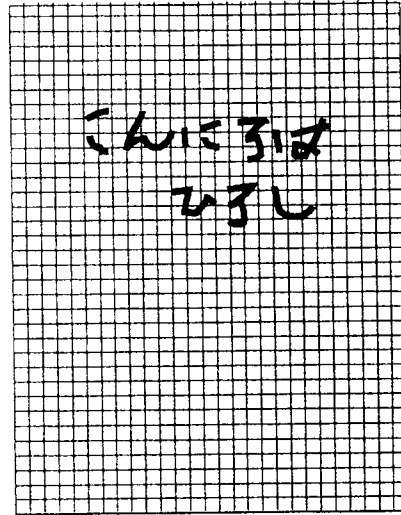 こんにろは
ひろし